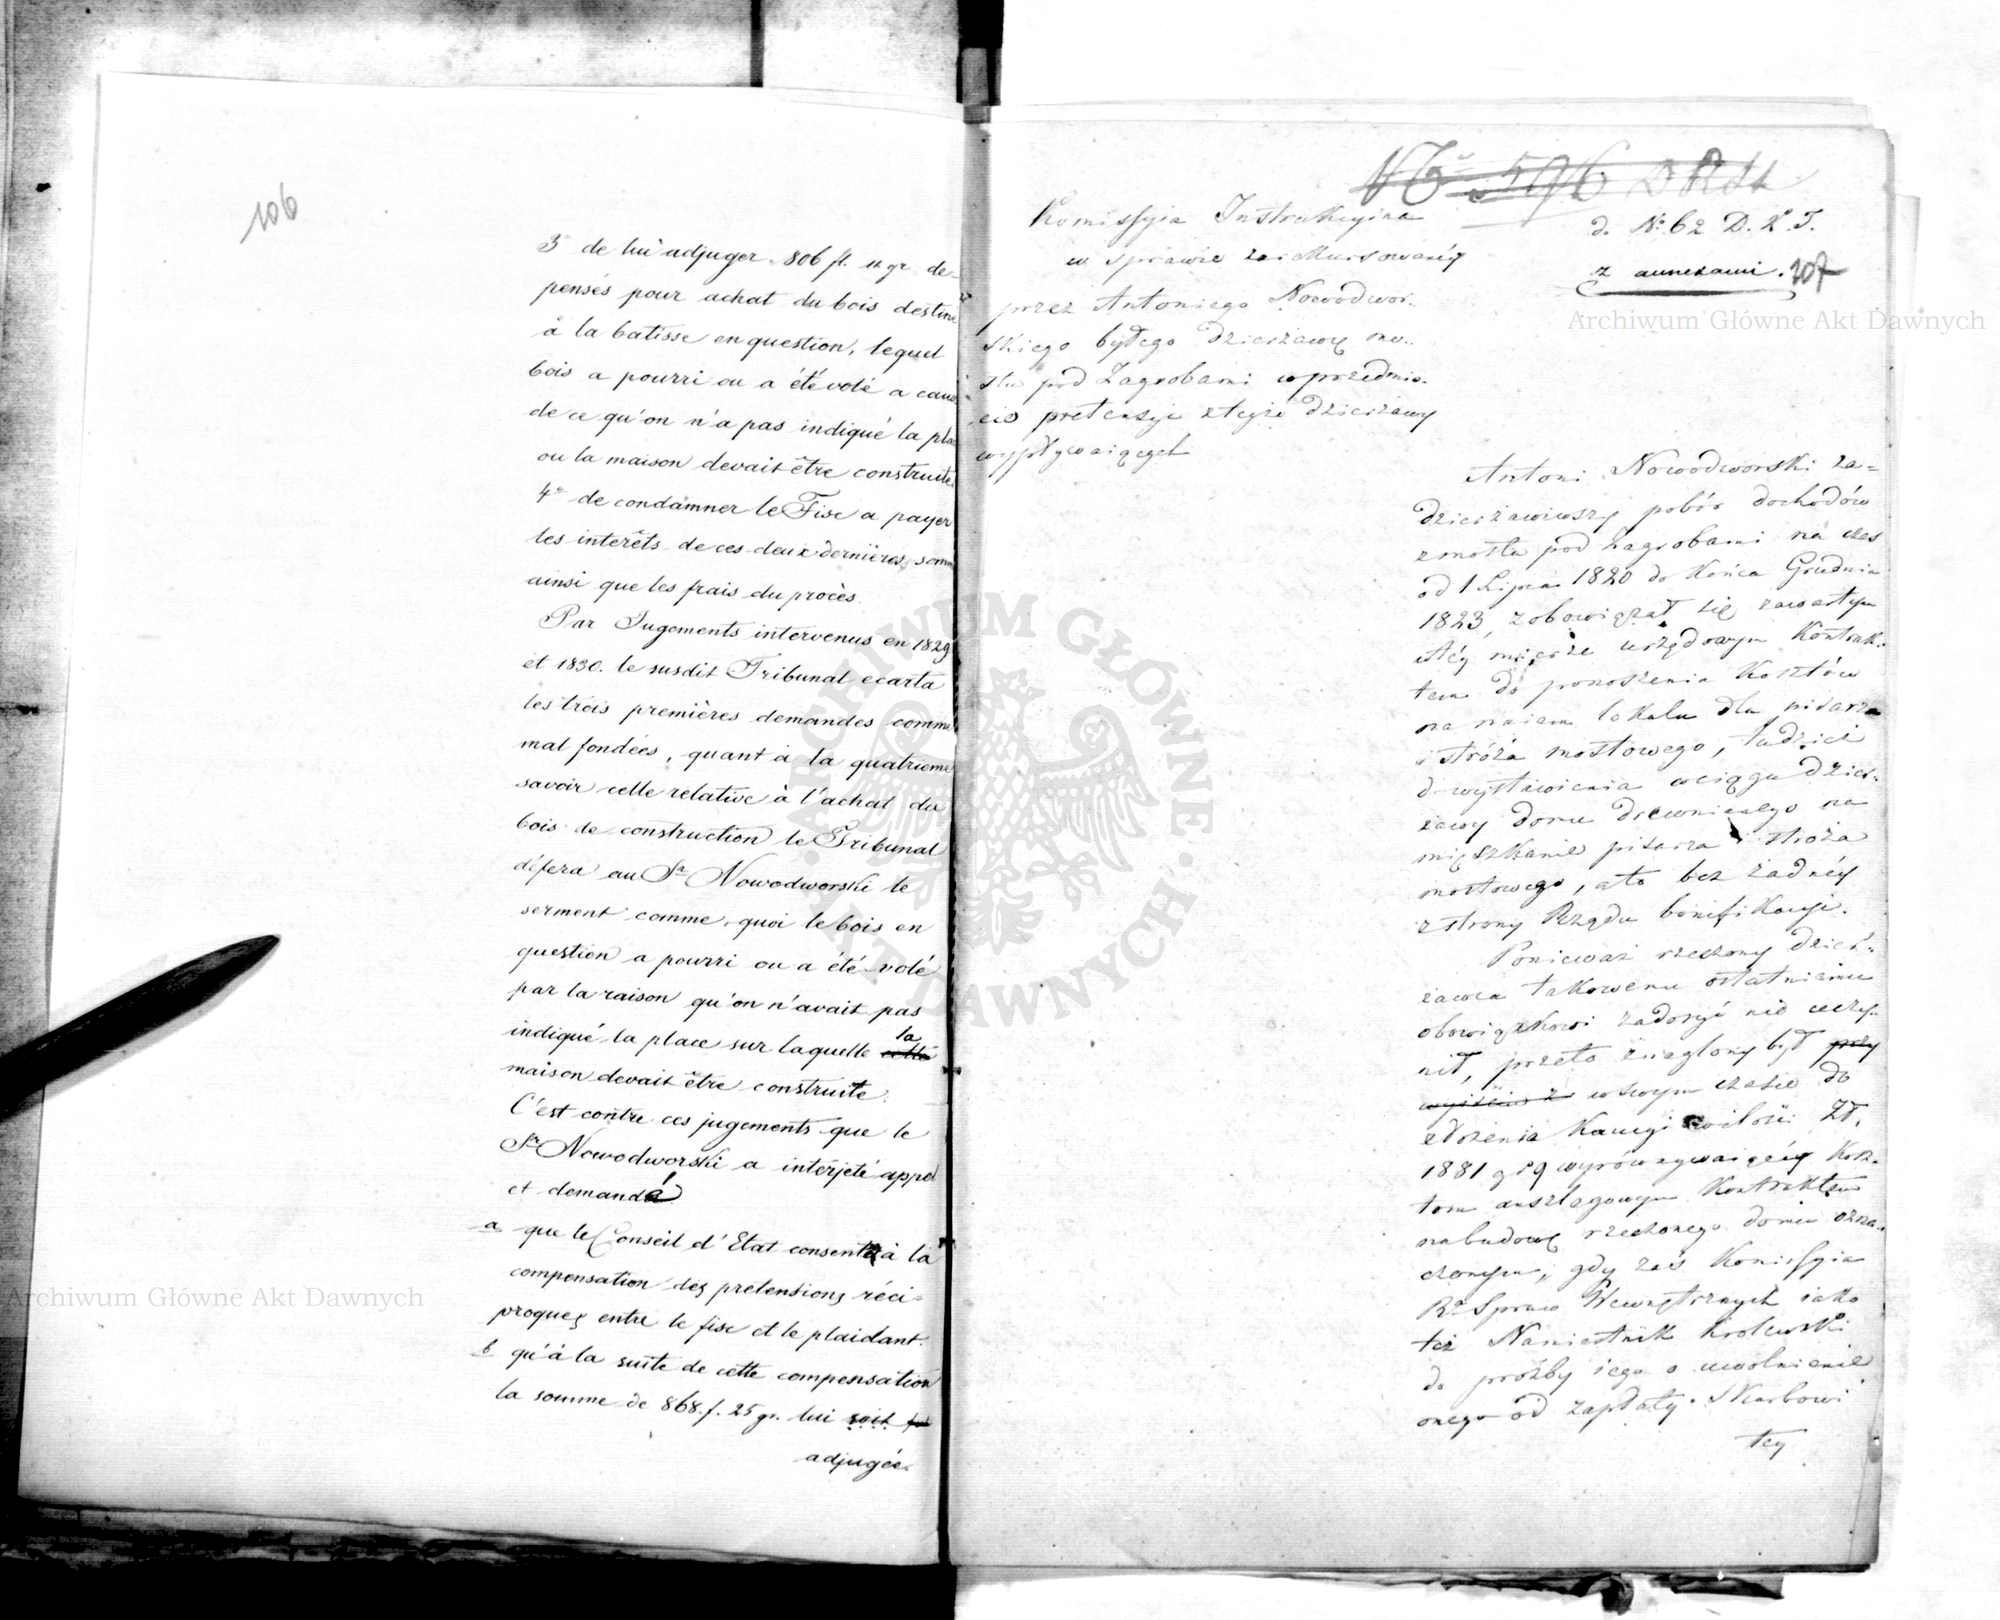 106
3° de lui adjuger 806 fl. 11 gr. de-
pensés pour achat du bois destiné
à la batisse en question, lequel
bois a pourri ou a été volé a cause
de ce qu'on n'a pas indiqué la place
ou la maison devait être construite
4° de condamner le Fisc a payer
les interêts de ces deux dernières somm
ainsi que les frais du procès.
Par Jugements intervenus en 1829
et 1830. le susdit Tribunal ecarta
les trois premières demandes comme
mal fondées, quant à la quatrieme
savoir celle relative à l'achat du
bois de construction le Tribunal
défera au Sr Nowodworski le
serment comme quoi le bois en
question a pourri ou a été volé
par la raison qu'on n'avait pas
indiqué la place sur laquelle cette la
maison devait être construite.
C'est contre ces jugements que le
Sr Nowodworski a interjeté appel
et demandé
a que le Conseil d'Etat consente à la
compensation des pretensions réci-
proques entre le fisc et le plaidant.
b qu'à la suite de cette compensation
la somme de 868. f. 25 gr. lui soit
adjugée.
No 596
d. No 62 D. K. T.
z annexami. 107
Komissyia Instrukcyina
w sprawie zarekursowanéy
przez Antoniego Nowodwor-
skiego byłego dzierżawcę mo-
stu pod Zagrobami w przedmio-
cie pretensyi z teyże dzierżawy
wypływaiących
Antoni Nowodworski za-
dzierżawiwszy pobór dochodów
z mostu pod Zagrobami na czas
od 1 Lipca 1820 do końca Grudnia
1823, zobowiązał się zawartym
w téy mierze urzędowym Kontrak-
tem do ponoszenia Kosztów
na naiem lokalu dla pisarza
i stróża mostowego, tudzież
do wystawienia w ciągu dzier-
żawy domu drewnianego na
mięszkanie pisarza i stróża
mostowego, a to bez żadnéy
z strony Rządu bonifikacyi.
Ponieważ rzeczony dzier-
żawca takowemu ostatniemu
obowiązkowi zadosyć nie uczy-
nił, przeto znaglony był przy
w swym czasie do
złożenia Kaucyi w ilości Zł.
1881 g 19 wyrównywaiącéy Kosz-
tom anszlagowym Kontraktem
na budowę rzeczonego domu ozna-
czonym, gdy zaś Komissyia
Rz. Spraw Wewnętrznych iako
też Namiestnik Królewski
do prośby iego o uwolnienie
onego od zapłaty Skarbowi
tey
Archiwum Główne Akt Dawnych
Archiwum Główne Akt Dawnych
ARCHIWUM GŁÓWNE AKT DAWNYCH